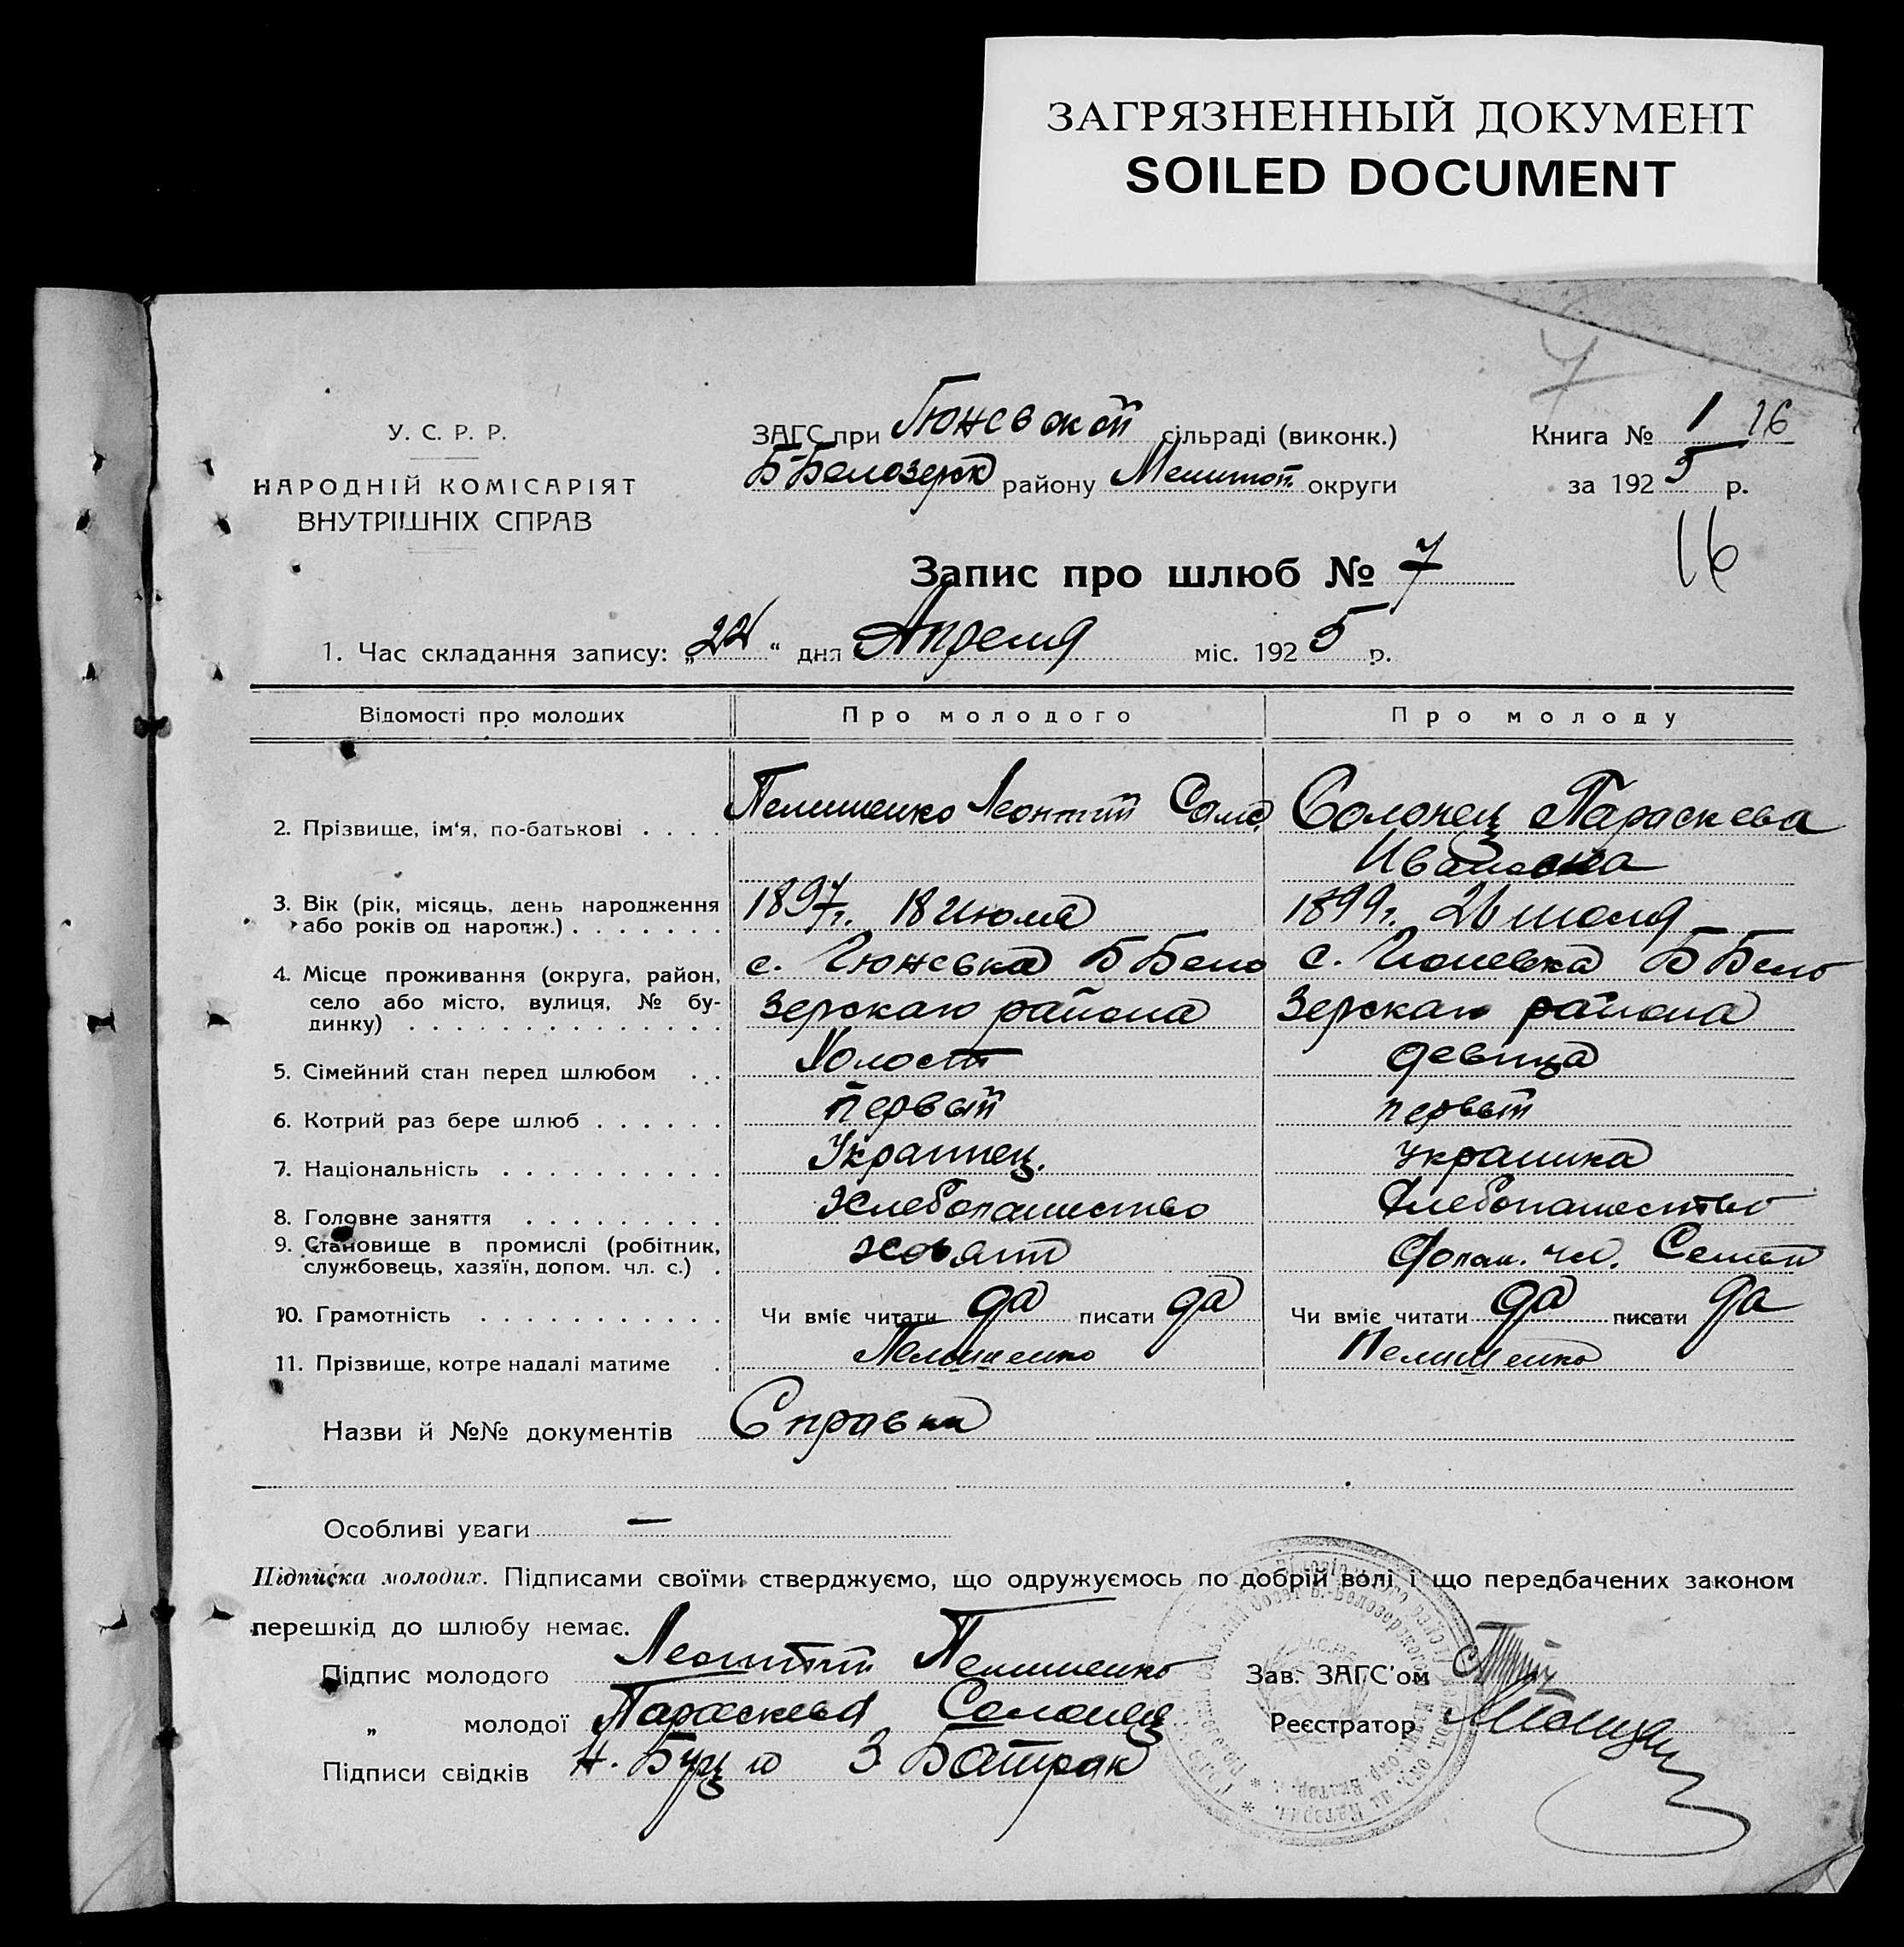 ЗАГРЯЗНЕННЫЙ ДОКУМЕНТ
SOILED DOCUMENT
7
У. С. Р. Р.
НАРОДНІЙ КОМІСАРІЯТ
ВНУТРІШНІХ СПРАВ
ЗАГС при Гюневской сільраді (виконк.)
Б-Белозерк району Мелитоп. округи
Книга № 1 16
за 1925 р.
16
Запис про шлюб № 7
1. Час складання запису: „22“ дня Апреля міс. 1925 р.
Відомості про молодих Про молодого Про молоду
2. Прізвище, ім'я, по-батькові . . . . Пелишенко Леонтий Сам. Солонец Параскева
Ивановна
3. Вік (рік, місяць, день народження 1897 г. 18 июля 1899 г. 26 июля
або років од народж.) . . . . . . .
4. Місце проживання (округа, район, с. Гюневка Б Бело с. Гюневка Б Бело
село або місто, вулиця, № бу- зерскаго района зерскаго района
динку) . . . . . . . . . . . . . .
5. Сімейний стан перед шлюбом . . Холост девица
6. Котрий раз бере шлюб . . . . . . первый первый
7. Національність . . . . . . . . . . Украинец. украинка
8. Головне заняття . . . . . . . . . Хлебопашество Хлебопашество
9. Становище в промислі (робітник, хозяин допом. чл. Семьи
службовець, хазяїн, допом. чл. с.) .
10. Грамотність . . . . . . . . . . . Чи вміє читати да писати да Чи вміє читати да писати да
11. Прізвище, котре надалі матиме . Пелишенко Пелишенко
Назви й №№ документів Справки
Особливі уваги —
Підписка молодих. Підписами своїми стверджуємо, що одружуємось по добрій волі і що передбачених законом
перешкід до шлюбу немає.
Підпис молодого Леонтий Пелишенко Зав. ЗАГС'ом
„ молодої Параскева Солонец Реєстратор
Підписи свідків Н. Буц З Батрак